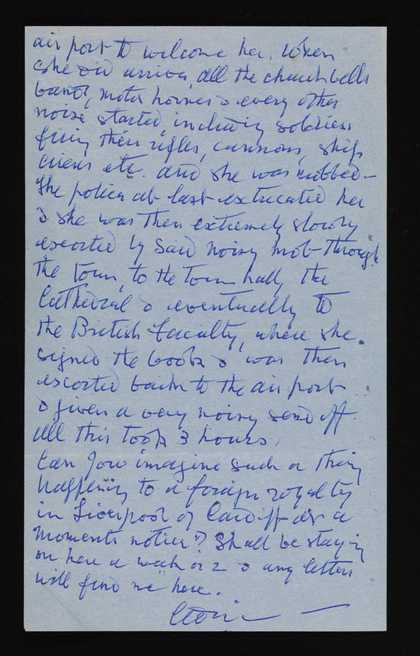 air port to welcome her. When
she did arrive, all the church bells
band, motor hornes & every other
noise started, including soldiers
firing their rifles, cannons, ships
sirens etc. and she was mobbed –
the police at last extricated her
& she was then extremely slowly
escorted by said noisy mob through
the town, to the Town hall, the
Cathedral & eventually to
the British faculty, where she
signed the books & was then
escorted back to the air port
& given a very noisy send off.
All this took 3 hours.
Can you imagine such a thing
happening to a foreign royalty
in Liverpool or Cardiff at a
moments notice? Shall be staying
on here a week or 2 & any letters
will find me here.